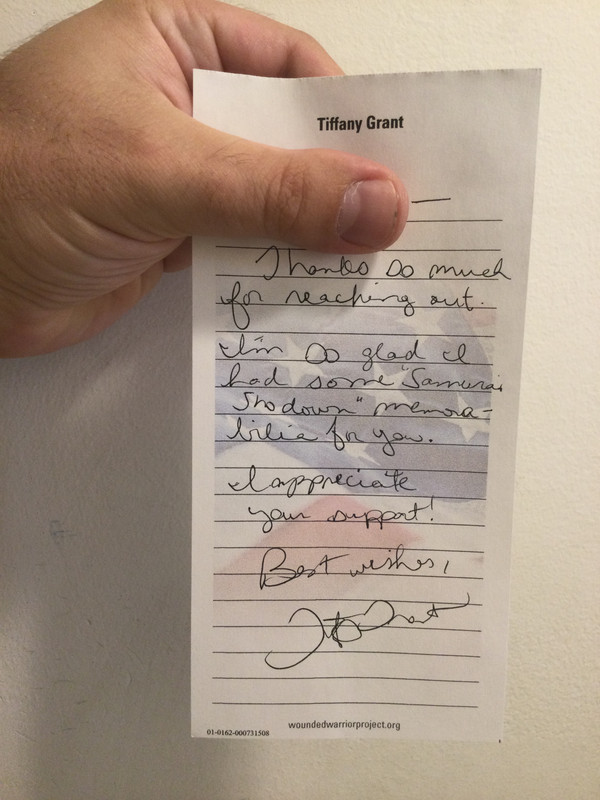 Tiffany Grant
—
Thanks so much
for reaching out.
I'm so glad I
had some "Samurai
Shodown" memora-
bilia for you.
I appreciate
your support!
Best wishes,
01-0162-000731508
woundedwarriorproject.org